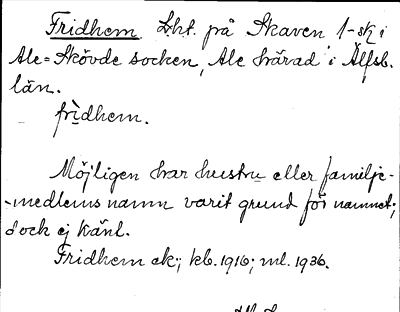 Fridhem. Lht. på Skaven 1-sk i
Ale-Skövde socken, Ale härad i Älfsb.
län.
frìdhem.
Möjligen har hustru eller familje-
-medlems namn varit grund för namnet;
dock ej känt.
Fridhem ek; kb. 1916; ml. 1936.